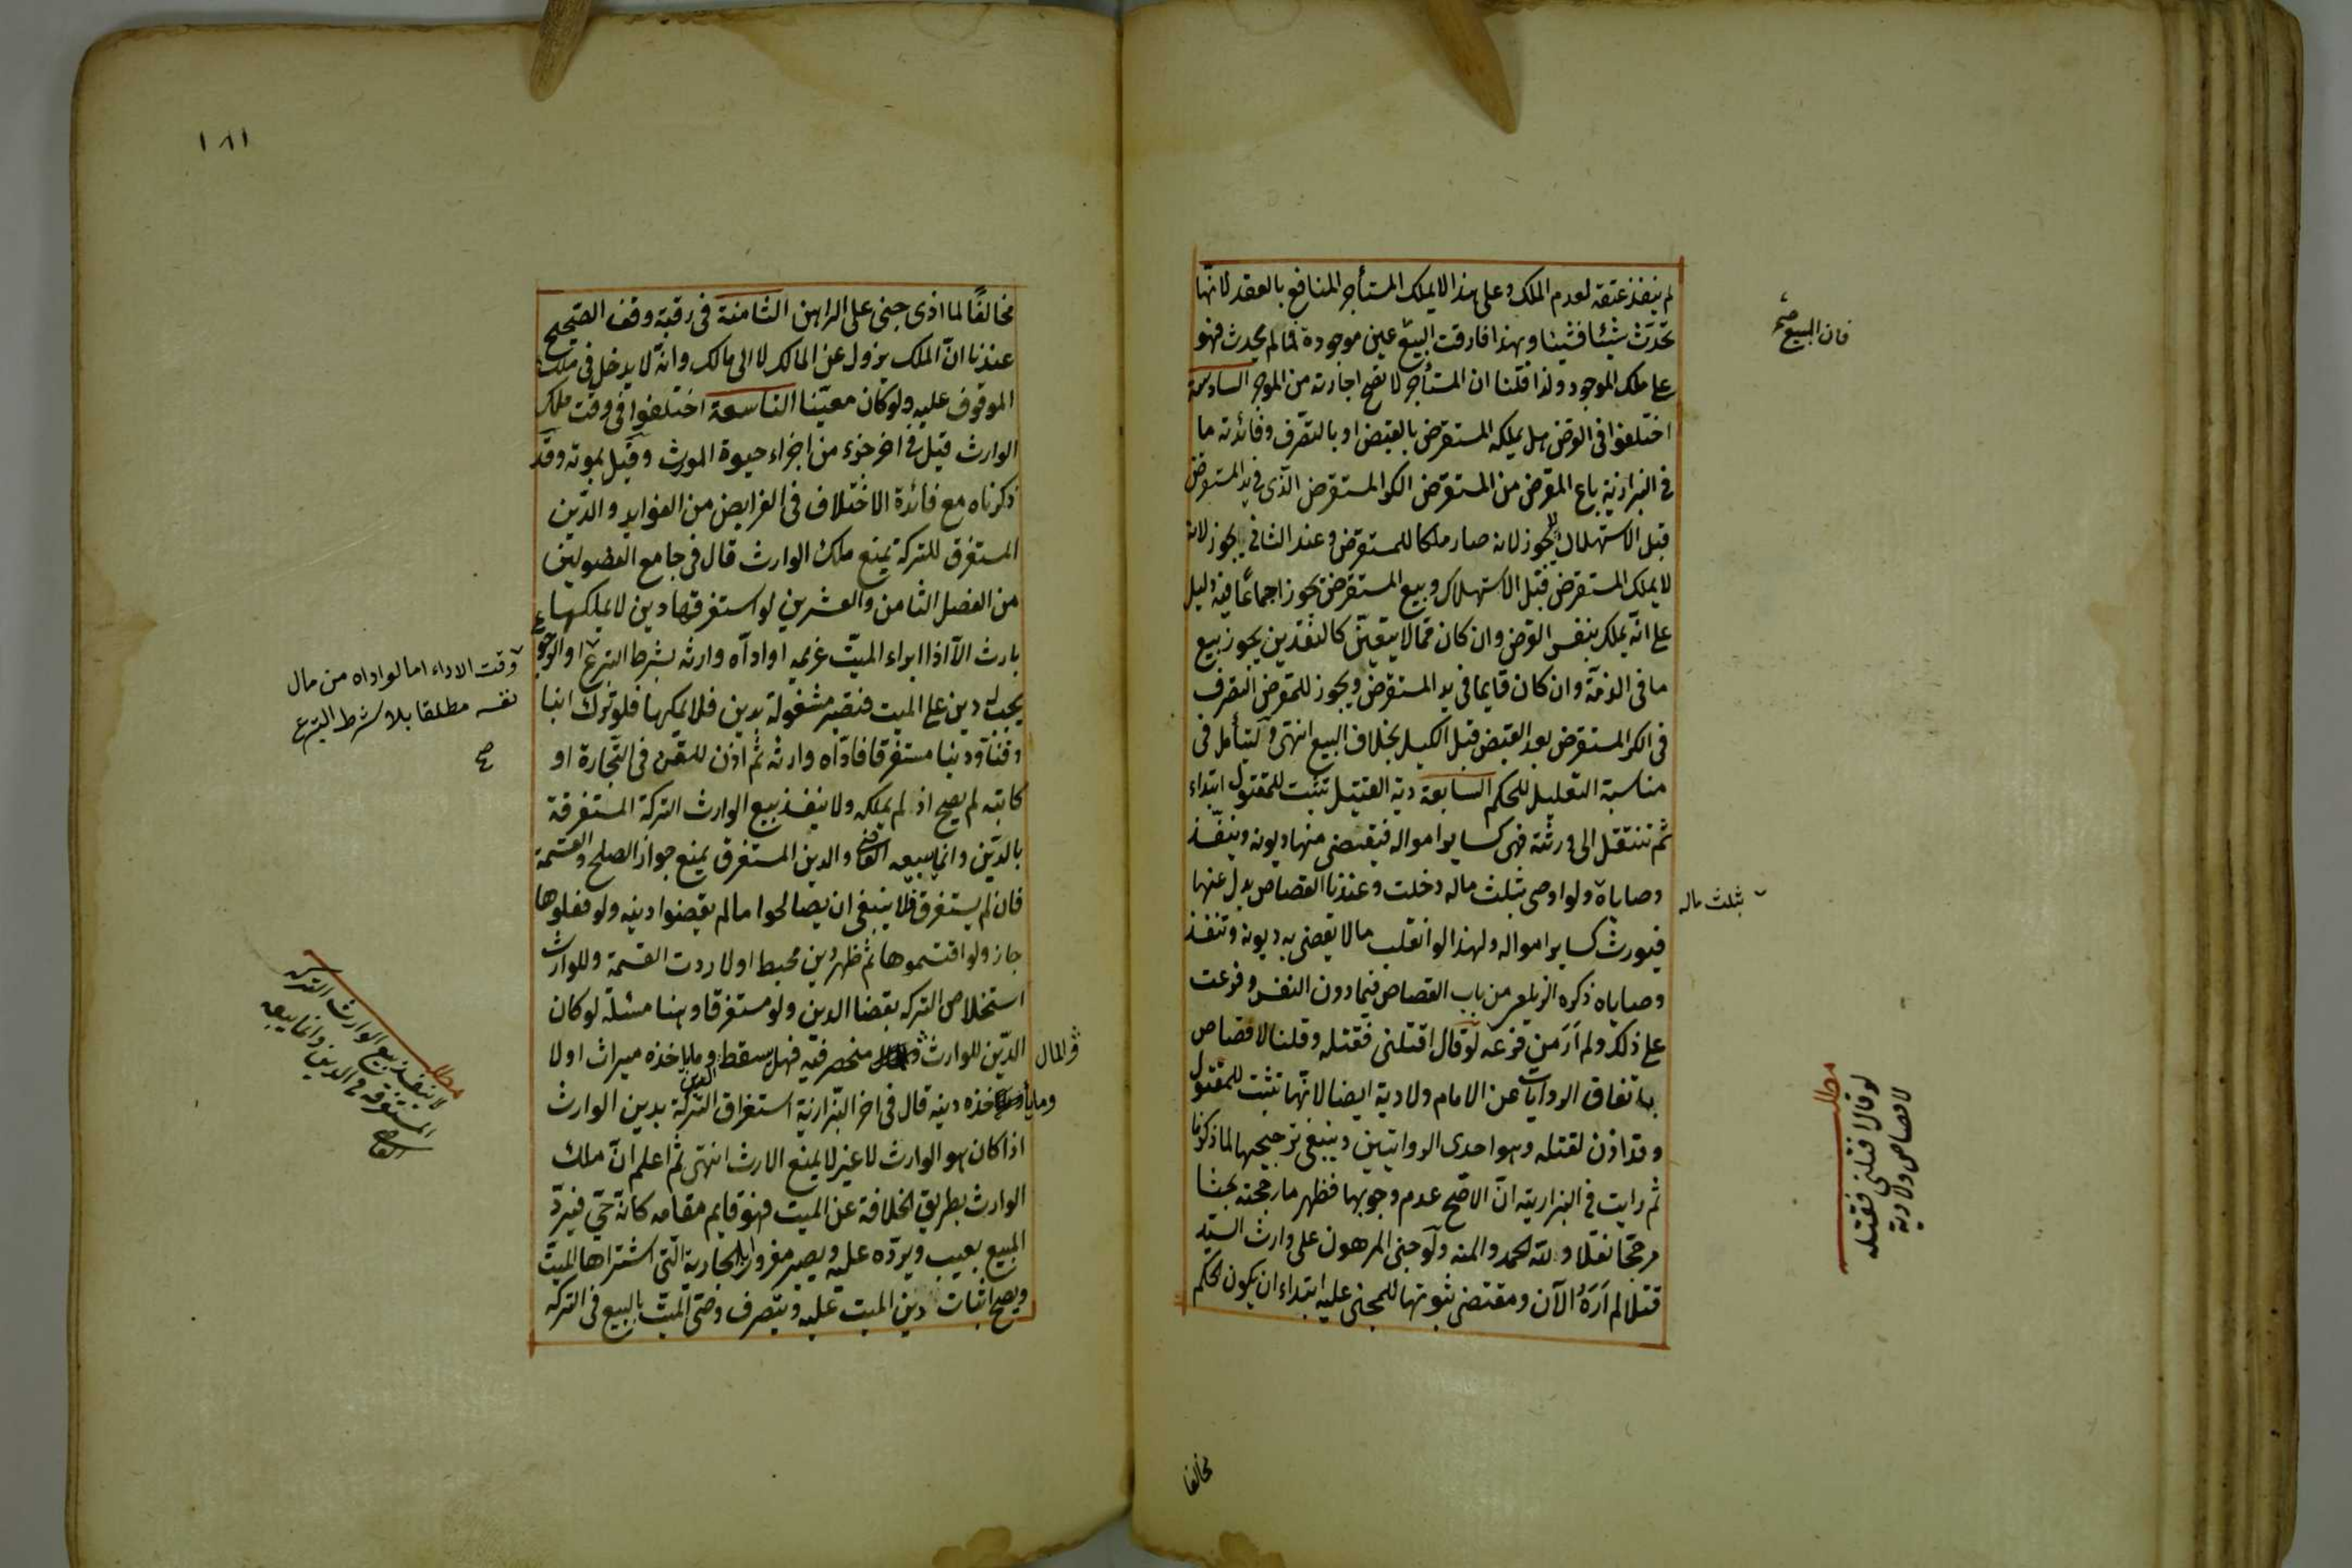 لم ينفذ عتقه لعدم الملك وعلى هذا لا يملك المستأجر المنافع بالعقد لانّها
تحدث شيئا فشيئا وبهذا فارقت البيع عين موجودة فما لم يحدث فهو
على ملك الموجود ولذا قلنا ان المستأجر لا تصح اجارته من الموجر السادسة
اختلفوا فى القرض هل يملكه المستقرض بالقبض او بالتصرّف وفائدته ما
فى البزازية باع المقرض من المستقرض الكر المستقرض الذّى فى يد المستقرض
قبل الاستهلاك لا يجوز لانه صار ملكا للمستقرض وعند الثانى يجوز لانه
لا يملك المستقرض قبل الاستهلاك وبيع المستقرض يجوز اجماعًا فيه دليل
على انّه يملك بنفس القرض وان كان ممّا لا يتعيّن كالنقدين يجوز بيع
ما فى الذمّة وان كان قايما فى يد المستقرض ويجوز للمقرض التصرف
فى الكر المستقرض بعد القبض قبل الكيل بخلاف البيع انتهى وليتأمل فى
مناسبة التعليل للحكم السابعة دية القتيل تثبت للمقتول ابتداء
ثم تنتقل الى ورثته فهى كساير امواله فيقضى منها ديونه وينفّذ
وصاياه ولو اوصى بثلث ماله دخلت وعندنا القصاص بدل عنها
فيورث كساير امواله ولهذا لو انقلب مالا يقضى به ديونه وتنفذ
وصاياه ذكره الزيلعى من باب القصاص فيما دون النفس وفرعت
على ذلك ولم أرَ من فرعه لو قال اقتلنى فقتله وقلنا لا قصاص
باتفاق الروايات عن الامام ولا دية ايضا لانّها تثبت للمقتول
وقد اذن لقتله وهو احدى الروايتين وينبغى ترجيحها لما ذكرنا
ثم رايت فى البزازيه انّ الاصّح عدم وجوبها فظهر ما رجحته بحثا
مرجّحا نقلا ولله الحمد والمنه ولو جنى المرهون على وارث السيّد
قتلا لم أرَهُ الآن ومقتضى ثبوتها للمجنى عليه ابتداء ان يكون الحكم
فان البيع صح
بثلث ماله
مطلب
لو قال اقتلنى فقتله
لا قصاص ولا دية
مخالفا
١٨١
مخالفًا لما اذى جنى على الراهن الثامنة فى رقبة وقف الصّحيح
عندنا انّ الملك يزول عن المالك لا الى مالك وانّه لا يدخل فى ملك
الموقوف عليه ولو كان معيّنا التاسعة اختلفوا فى وقت ملك
الوارث قيل فى اخر جزء من اجزاء حيوة المورث وقيل بموته وقد
ذكرناه مع فائدة الاختلاف فى الفرايض من الفوايد والدّين
المستغرق للتركة يمنع ملك الوارث قال فى جامع الفصولين
من الفصل الثامن والعشرين لو استغرقها دين لا يملكها
بارث الّا اذا ابراء الميّت غريمه او ادّاه وارثه بشرط التبرع
يجب له دين على الميت فتصير مشغولة بدين فلا يملكها فلو ترك ابنا
وقنّا ودينا مستغرقا فادّاه وارثه ثم اذن للقن فى التّجارة او
كاتبه لم يصح اذ لم يملكه ولا ينفذ بيع الوارث التركة المستغرقة
بالدّين وانما يبيعه القاضى والدين المستغرق يمنع جواز الصلح والقسمة
فان لم يستغرق فلا ينبغى ان يصالحوا ما لم يقضوا دينه ولو فعلوها
جاز ولو اقتسموها ثم ظهر دين محيط اولا ردت القسمة وللوارث
استخلاص التركه بقضا الدين ولو مستغرقا وهنا مسئلة لو كان
الدّين للوارث منحصر فيه فهل يسقط وما ياخذه ميراث اولا
خذه دينه قال فى اخر البّزازيّة استغراق التّركة بدين الوارث
اذا كان هو الوارث لا غير لا يمنع الارث انتهى ثم اعلم انّ ملك
الوارث بطريق الخلافة عن الميت فهو قايم مقامه كانّه حّى فيردّ
المبيع بعيب ويردّه عليه ويصير مغرورا بالجارية الّتى اشتراها الميت
ويصح اثبات دين الميت عليه ويتصرف وصّى الميّت بالبيع فى التركه
وقت الاداء اما لو اداه من مال
نفسه مطلقا بلا شرط التبرع
صح
والمال
وما يأ
مطلب
لا ينفذ بيع الوارث التركه
المستغرقه فى الدين وانما يبيعه
القاضى